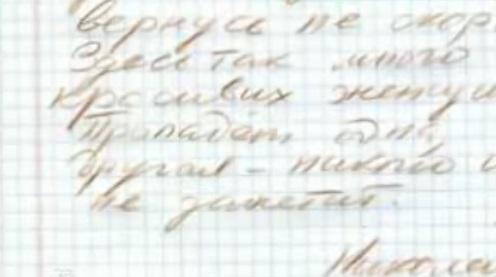 вернусь не скор
Здесь так много
красивых женщи
Пропадёт одна,
другая - никто и
не заметит.